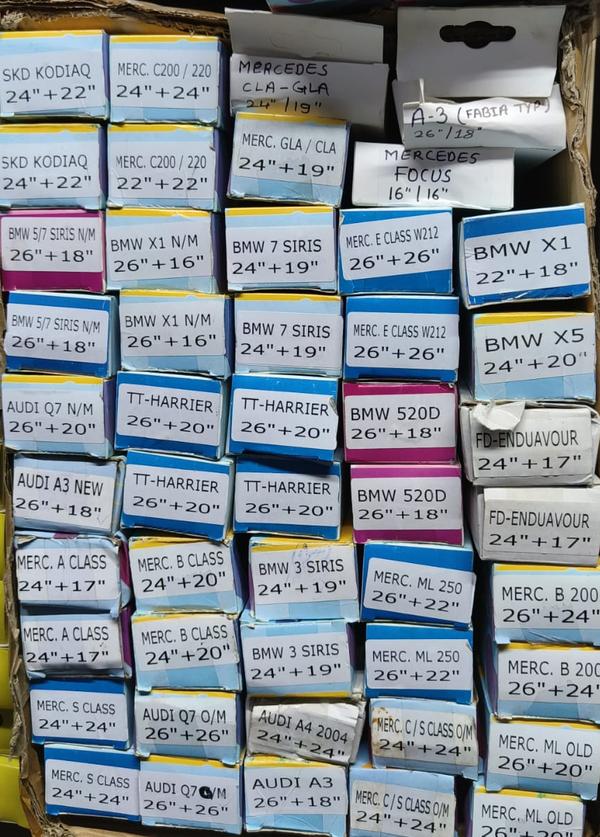 SKD KODIAQ
24"+22"
MERC. C200 / 220
24"+24"
MERCEDES
CLA-GLA
24"/19"
A-3 (FABIA TYP)
26"/18"
SKD KODIAQ
24"+22"
MERC. C200 / 220
22"+22"
MERC. GLA / CLA
24"+19"
MERCEDES
FOCUS
16"/16"
BMW 5/7 SIRIS N/M
26"+18"
BMW X1 N/M
26"+16"
BMW 7 SIRIS
24"+19"
MERC. E CLASS W212
26"+26"
BMW X1
22"+18"
BMW 5/7 SIRIS N/M
26"+18"
BMW X1 N/M
26"+16"
BMW 7 SIRIS
24"+19"
MERC. E CLASS W212
26"+26"
BMW X5
24"+20"
AUDI Q7 N/M
26"+20"
TT-HARRIER
26"+20"
TT-HARRIER
26"+20"
BMW 520D
26"+18"
FD-ENDUAVOUR
24"+17"
AUDI A3 NEW
26"+18"
TT-HARRIER
26"+20"
TT-HARRIER
26"+20"
BMW 520D
26"+18"
FD-ENDUAVOUR
24"+17"
MERC. A CLASS
24"+17"
MERC. B CLASS
24"+20"
BMW 3 SIRIS
24"+19"
MERC. ML 250
26"+22"
MERC. B 200
26"+24"
MERC. A CLASS
24"+17"
MERC. B CLASS
24"+20"
BMW 3 SIRIS
24"+19"
MERC. ML 250
26"+22"
MERC. B 200
26"+24"
MERC. S CLASS
24"+24"
AUDI Q7 O/M
26"+26"
AUDI A4 2004
24"+24"
MERC. C / S CLASS O/M
24"+24"
MERC. ML OLD
26"+20"
MERC. S CLASS
24"+24"
AUDI Q7 O/M
26"+26"
AUDI A3
26"+18"
MERC. C / S CLASS O/M
24"+24"
MERC. ML OLD
26"+20"